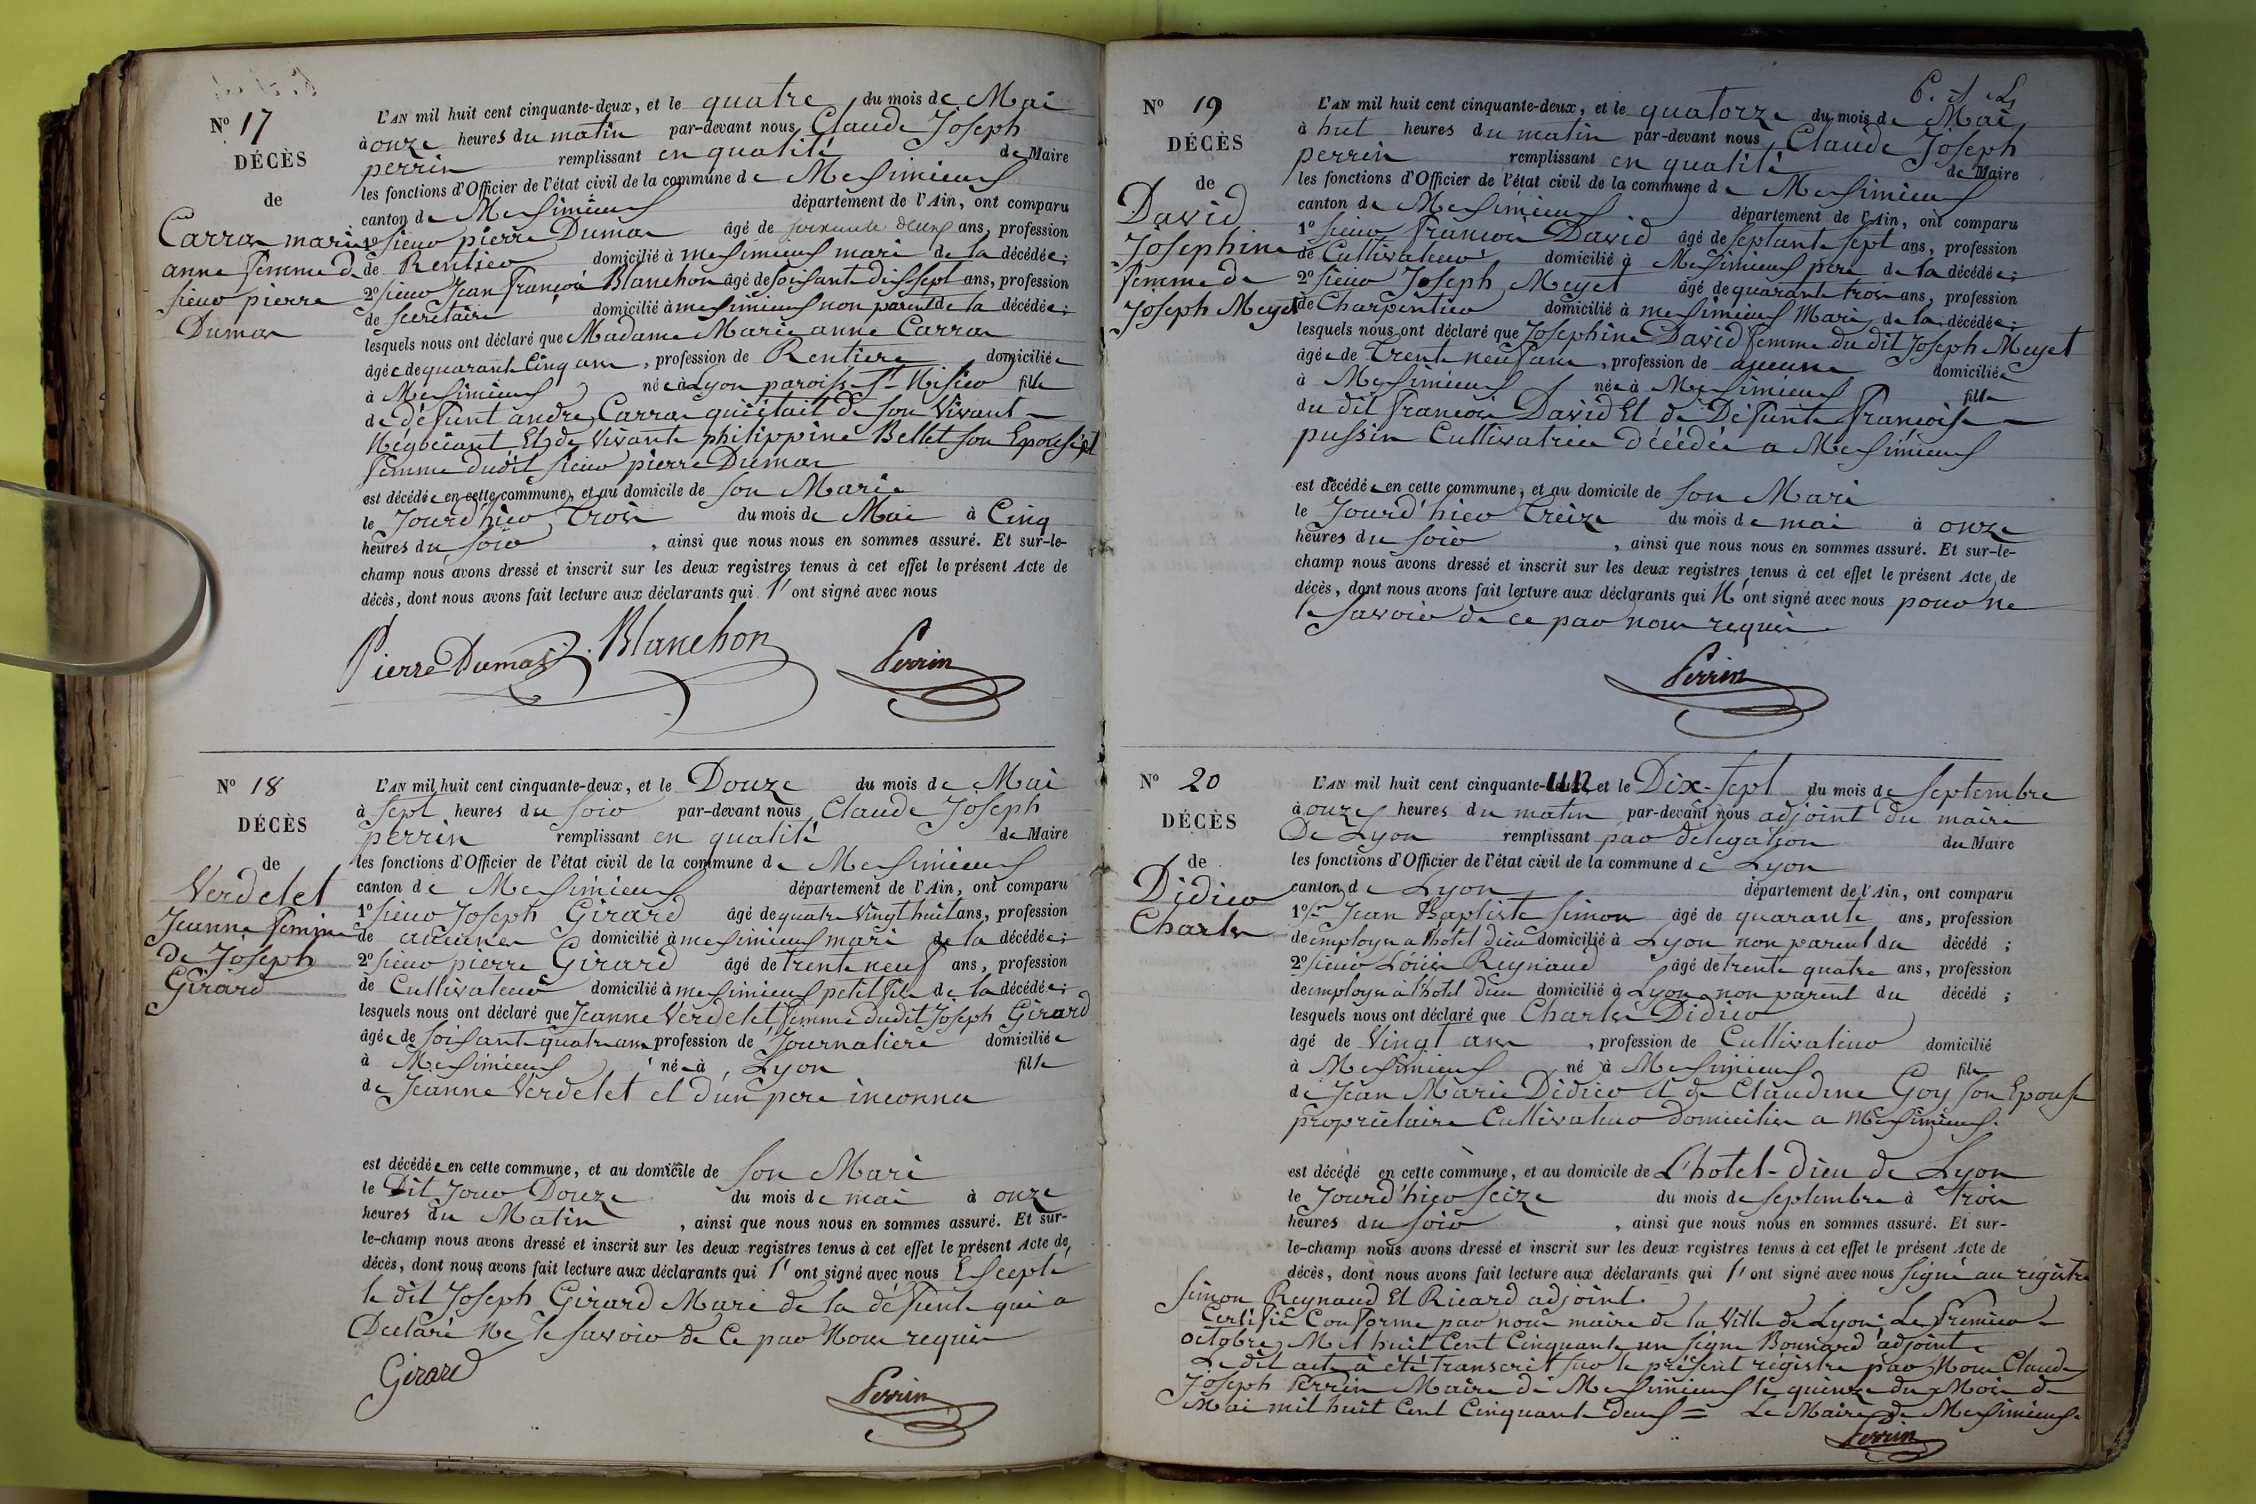 N° 17
DÉCÈS
de
Carra marie
anne femme de
sieur pierre
Dumas
L'AN mil huit cent cinquante-deux, et le quatre du mois de Mai
à onze heures du matin par-devant nous Claude Joseph
perrin remplissant en qualité de Maire
les fonctions d'Officier de l'état civil de la commune de Messimieux
canton de Messimieux département de l'Ain, ont comparu
1° sieur pierre Dumas âgé de soixante deux ans, profession
de Rentier domicilié à messimieux mari de la décédée;
2° sieur Jean françois Blanchon âgé de soissante dix-sept ans, profession
de secretaire domicilié à messimieux non parent de la décédée;
lesquels nous ont déclaré que Madame Marie anne Carra
âgée de quarante Cinq ans, profession de Rentiere domiciliée
à Messimieux née à Lyon paroisse St Nisier fille
de défunt andré Carra qui était de son Vivant
Négociant Et de Vivante philippine Bellet son Epouse et
femme dudit sieur pierre Dumas
est décédée en cette commune, et au domicile de son Marie
le Jourd'hier trois du mois de Mai à Cinq
heures du soir, ainsi que nous nous en sommes assuré. Et sur-le-
champ nous avons dressé et inscrit sur les deux registres tenus à cet effet le présent Acte de
décès, dont nous avons fait lecture aux déclarants qui l' ont signé avec nous
Pierre Dumas Blanchon Perrin
N° 18
DÉCÈS
de
Verdelet
Jeanne femme
de Joseph
Girard
L'AN mil huit cent cinquante-deux, et le Douze du mois de Mai
à sept heures du soir par-devant nous Claude Joseph
perrin remplissant en qualité de Maire
les fonctions d'Officier de l'état civil de la commune de Messimieux
canton de Messimieux département de l'Ain, ont comparu
1° sieur Joseph Girard âgé de quatre Vingt huit ans, profession
de aucune domicilié à messimieux mari de la décédée;
2° sieur pierre Girard âgé de trente neuf ans, profession
de Cultivateur domicilié à messimieux petit fils de la décédée;
lesquels nous ont déclaré que Jeanne Verdelet femme dudit Joseph Girard
âgée de soissante quatre ans profession de Journaliere domiciliée
à Messimieux née à Lyon fille
de Jeanne Verdelet et d'un pere inconnu
est décédée en cette commune, et au domicile de son Mari
le Dit Jour Douze du mois de mai à onze
heures du Matin, ainsi que nous nous en sommes assuré. Et sur-
le-champ nous avons dressé et inscrit sur les deux registres tenus à cet effet le présent Acte de
décès, dont nous avons fait lecture aux déclarants qui l' ont signé avec nous Excepte
le dit Joseph Girard Mari de la défunte qui a
Declaré Ne le savoir de Ce par Nous requis
Girard
Perrin
N° 19
DÉCÈS
de
David
Josephine
femme de
Joseph Meyet
L'AN mil huit cent cinquante-deux, et le quatorze du mois de Mai
à huit heures du matin par-devant nous Claude Joseph
perrin remplissant en qualité de Maire
les fonctions d'Officier de l'état civil de la commune de Messimieux
canton de Messimieux département de l'Ain, ont comparu
1° sieur françois David âgé de septante sept ans, profession
de Cultivateur domicilié à Messimieux pere de la décédée;
2° sieur Joseph Meyet âgé de quarante trois ans, profession
de Charpentier domicilié à messimieux Mari de la décédée;
lesquels nous ont déclaré que Josephine David femme du dit Joseph Meyet
âgée de trente neuf ans, profession de aucune domiciliée
à Messimieux née à Messimieux fille
du dit françois David Et de Défunte françoise
pussin Cultivatrice décédée a Messimieux
est décédée en cette commune, et au domicile de son Mari
le Jourd'hier treize du mois de mai à onze
heures du soir, ainsi que nous nous en sommes assuré. Et sur-le-
champ nous avons dressé et inscrit sur les deux registres tenus à cet effet le présent Acte de
décès, dont nous avons fait lecture aux déclarants qui N' ont signé avec nous pour ne
le savoir de ce par nous requis
Perrin
N° 20
DÉCÈS
de
Didier
Charles
L'AN mil huit cent cinquante- et le Dix-sept du mois de septembre
à onze heures du matin par-devant nous adjoint du maire
De Lyon remplissant par delegation du Maire
les fonctions d'Officier de l'état civil de la commune de Lyon
canton de Lyon département de l'Ain, ont comparu
1° sr Jean Baptiste simon âgé de quarante ans, profession
de employe a l'hotel dieu domicilié à Lyon non parent du décédé;
2° sieur Loüis Reynaud âgé de trente quatre ans, profession
de employe à l'hotel dieu domicilié à Lyon non parent du décédé;
lesquels nous ont déclaré que Charles Didier
âgé de Vingt ans, profession de Cultivateur domicilié
à Messimieux né à Messimieux fils
de Jean Marie Didier et de Claudine Goy son Epouse
propriétaire Cultivateur Domicilies a Messimieux.
est décédé en cette commune, et au domicile de L'hotel-Dieu de Lyon
le Jourd'hier seize du mois de septembre à trois
heures du soir, ainsi que nous nous en sommes assuré. Et sur-
le-champ nous avons dressé et inscrit sur les deux registres tenus à cet effet le présent Acte de
décès, dont nous avons fait lecture aux déclarants qui l' ont signé avec nous signé au registre
simon Reynaud Et Ricard adjoint.
Certifié Conforme par nous maire de la Ville de Lyon Le Premier
octobre Mil huit Cent Cinquante un signe Bonnard adjoint
Le dit acte à été transcrit sur le présent régistre par Nous Claude
Joseph Perrin Maire de Messimieux le quinze du Mois de
Mai mil huit Cent Cinquante deux = Le Maire de Messimieux.
Perrin